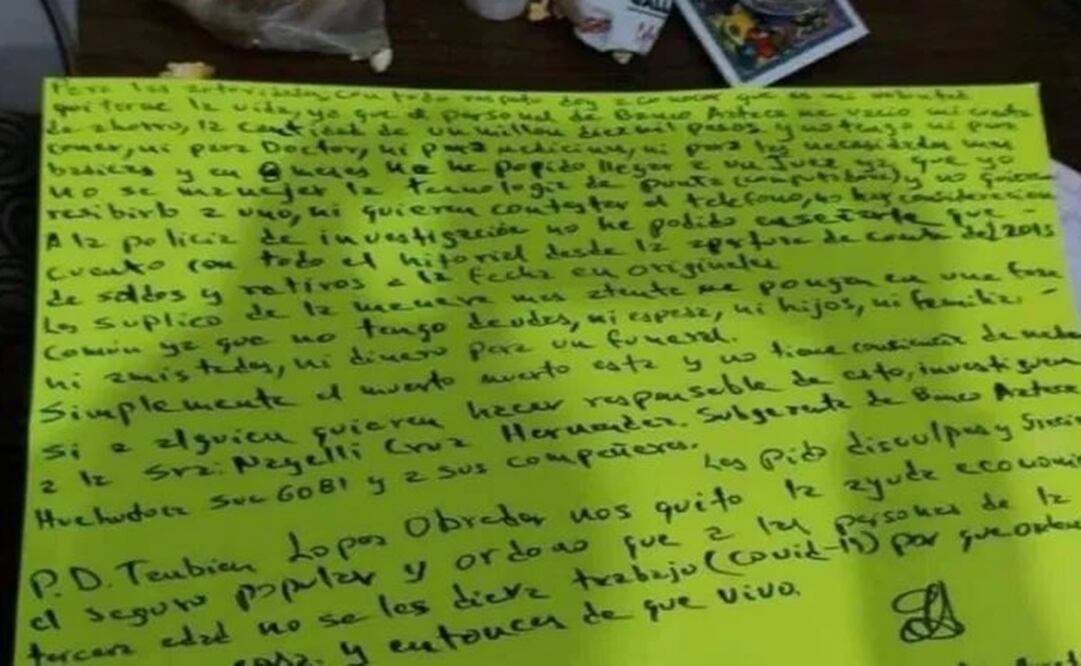 Para las autoridades con todo respeto doy a conocer que es mi voluntad
quitarme la vida, ya que el personal de Banco Azteca me vacio mi cuenta
de ahorro, la cantidad de un millon diezmil pesos y no tengo ni para
comer, ni para Doctor, ni para medicinas, ni para las necesidades mas
basicas y en 8 meses no he podido llegar a un Juez ya que yo
no se manejar la tecnologia de punta (computadora) y no quieren
resibirlo a uno, ni quieren contestar el telefono, no hay consideracion
A la policia de investigación no he podido enseñarle que -
cuento con todo el hitorial desde la apertura de cuenta del 2015
de saldos y retiros a la fecha en originales
Los suplico de la manera mas atenta me pongan en una fosa
común ya que no tengo deudos, ni esposa, ni hijos, ni familia -
ni amistades, ni dinero para un funeral.
Simplemente el muerto muerto esta y no tiene conciencia de nada
Si a alguien quieren hacer responsable de esto, investiguen
a la Sra: Nayelli Cruz Hernandez. Subgerente de Banco Azteca
Huehuetoca Suc 6081 y a sus compañeros.
Les pido disculpas y
P.D. Tanbien Lopes Obrador nos quito la ayuda
el seguro popular y ordeno que a las personas de la
tercera edad no se les diera trabajo (covid-19) por que
casa. y entonces de que vivo.